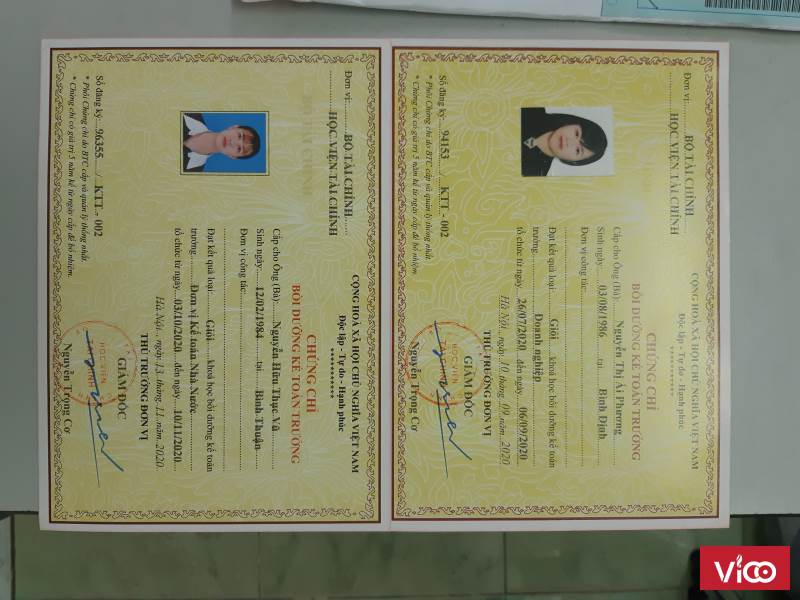 Đơn vị:.......... BỘ TÀI CHÍNH......
.............HỌC VIỆN TÀI CHÍNH
Số đăng ký:....96355...../.....KTT - 002
* Phôi Chứng chỉ do BTC cấp và quản lý thống nhất.
* Chứng chỉ có giá trị 5 năm kể từ ngày cấp để bổ nhiệm.
CỘNG HOÀ XÃ HỘI CHỦ NGHĨA VIỆT NAM
Độc lập - Tự do - Hạnh phúc
***********
CHỨNG CHỈ
BỒI DƯỠNG KẾ TOÁN TRƯỞNG
Cấp cho Ông (Bà):.......Nguyễn Hữu Thục Vũ
Sinh ngày:.....12/02/1984.......tại.....Bình Thuận
Đơn vị công tác:
Đạt kết quả loại:......Giỏi......khoá học bồi dưỡng kế toán
trưởng......Đơn vị Kế toán Nhà Nước
tổ chức từ ngày....03/10/2020....đến ngày....10/11/2020
Hà Nội, ngày 13 tháng 11 năm 2020
THỦ TRƯỞNG ĐƠN VỊ
GIÁM ĐỐC
HỌC VIỆN
TÀI CHÍNH
Nguyễn Trọng Cơ
Đơn vị:.......... BỘ TÀI CHÍNH
.............HỌC VIỆN TÀI CHÍNH
Số đăng ký:....94153...../.....KTT - 002
* Phôi Chứng chỉ do BTC cấp và quản lý thống nhất.
* Chứng chỉ có giá trị 5 năm kể từ ngày cấp để bổ nhiệm.
CỘNG HOÀ XÃ HỘI CHỦ NGHĨA VIỆT NAM
Độc lập - Tự do - Hạnh phúc
***********
CHỨNG CHỈ
BỒI DƯỠNG KẾ TOÁN TRƯỞNG
Cấp cho Ông (Bà):.......Nguyễn Thị Ái Phương
Sinh ngày:.....03/08/1986.......tại.....Bình Định
Đơn vị công tác:
Đạt kết quả loại:......Giỏi......khoá học bồi dưỡng kế toán
trưởng......Doanh nghiệp
tổ chức từ ngày....26/07/2020....đến ngày....06/09/2020
Hà Nội, ngày 10 tháng 09 năm 2020
THỦ TRƯỞNG ĐƠN VỊ
GIÁM ĐỐC
HỌC VIỆN
TÀI CHÍNH
Nguyễn Trọng Cơ
VICO